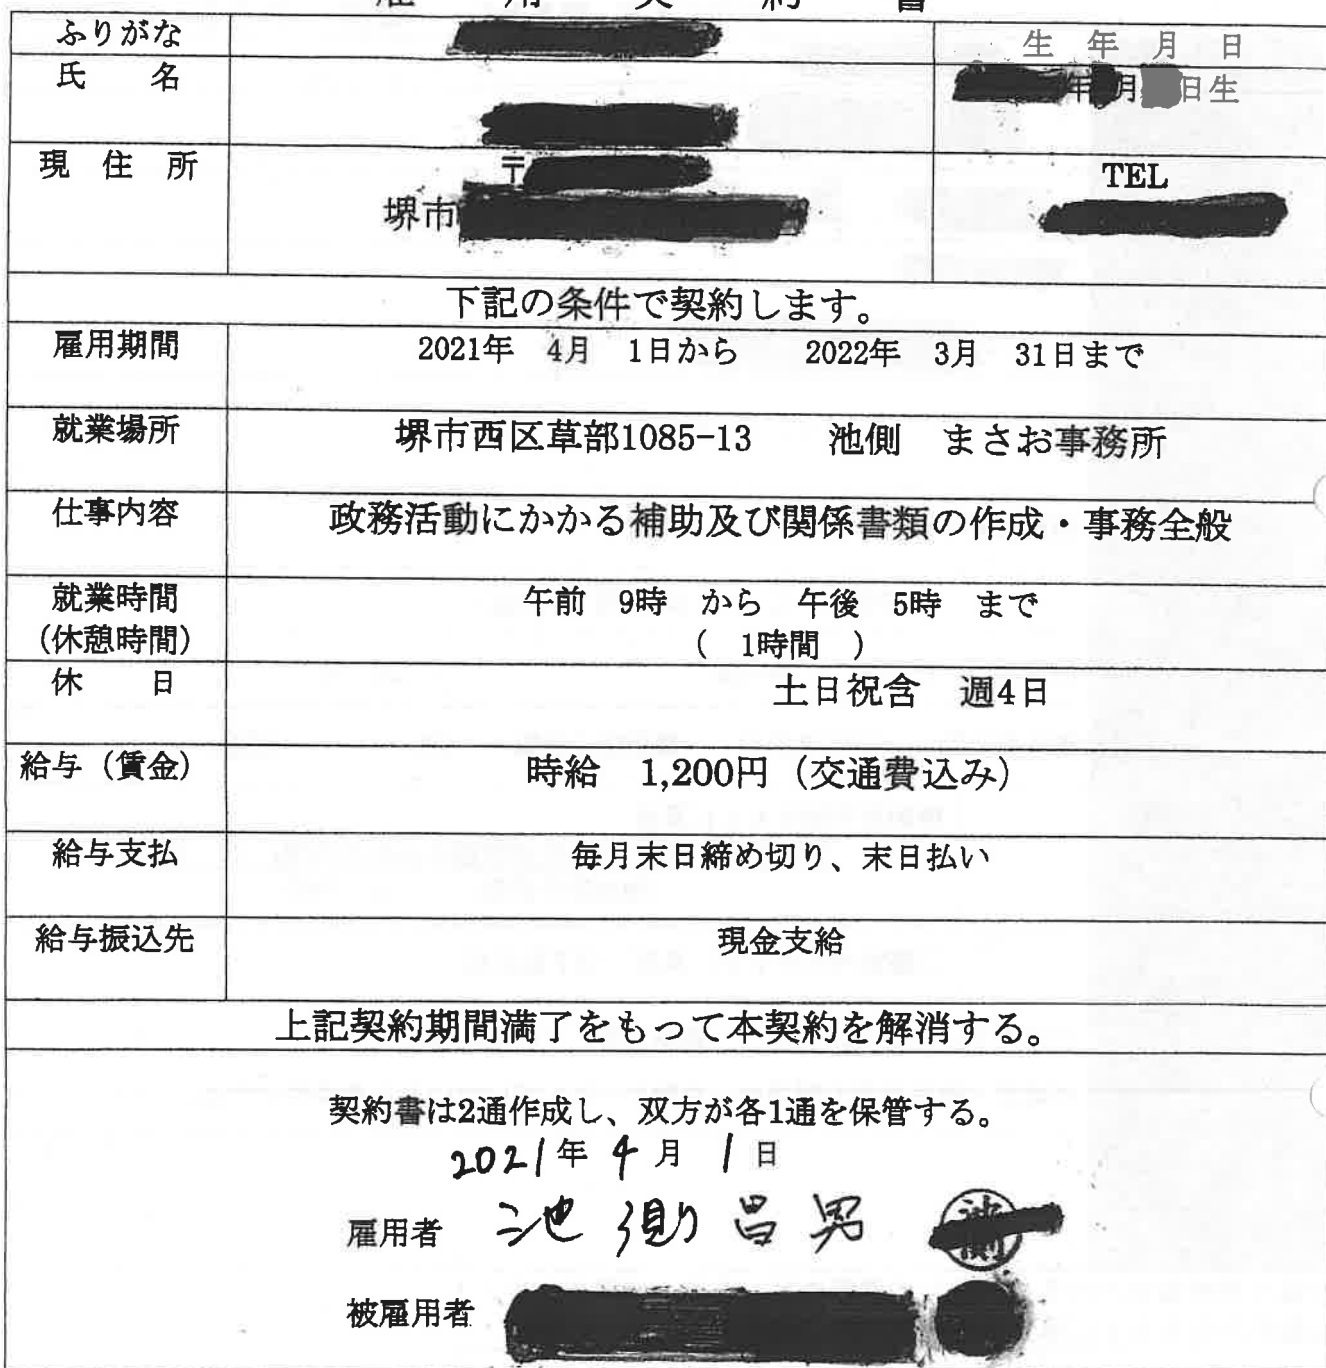 雇用契約書
ふりがな
生年月日
氏名
年 月 日生
現住所
〒
TEL
堺市
下記の条件で契約します。
雇用期間
2021年 4月 1日から 2022年 3月 31日まで
就業場所
堺市西区草部1085-13 池側 まさお事務所
仕事内容
政務活動にかかる補助及び関係書類の作成・事務全般
就業時間
午前 9時 から 午後 5時 まで
(休憩時間)
( 1時間 )
休日
土日祝含 週4日
給与(賃金)
時給 1,200円(交通費込み)
給与支払
毎月末日締め切り、末日払い
給与振込先
現金支給
上記契約期間満了をもって本契約を解消する。
契約書は2通作成し、双方が各1通を保管する。
2021年 4月 1日
雇用者 池側昌男 池側
被雇用者